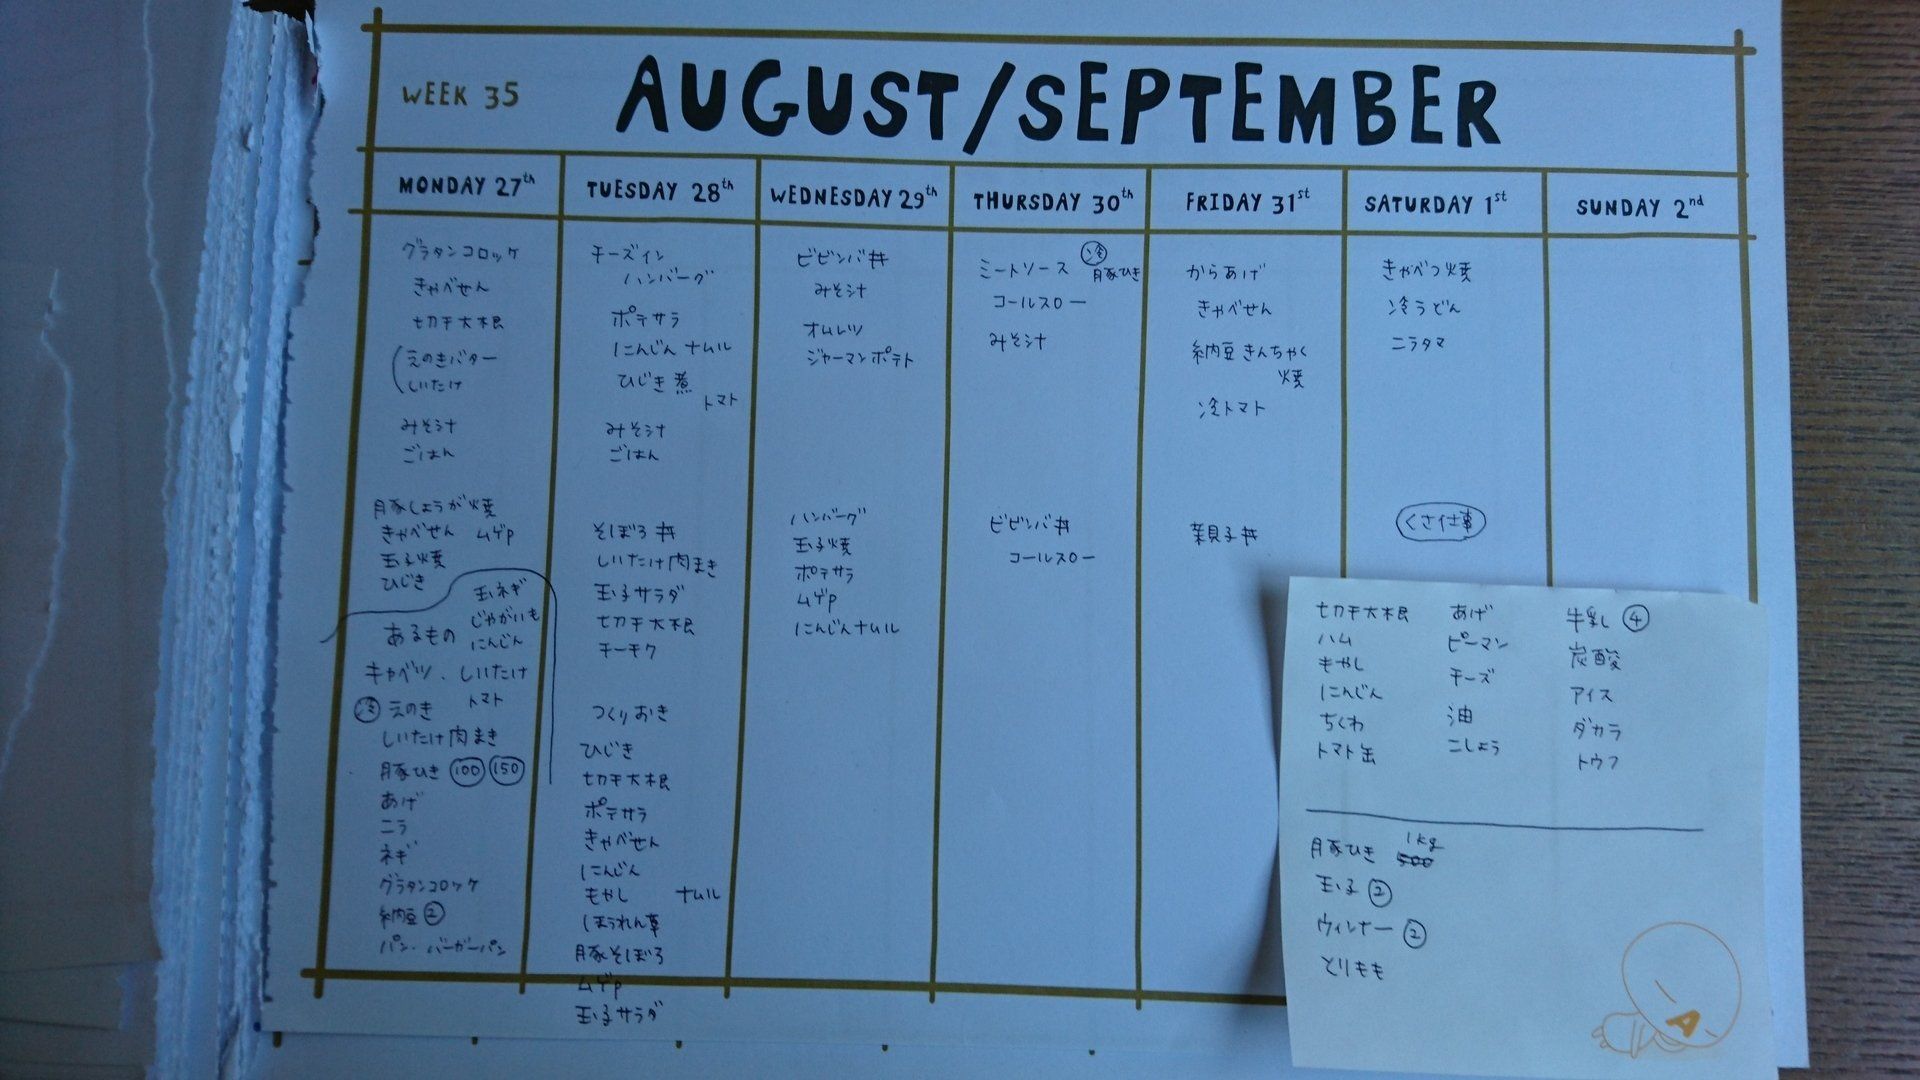 WEEK 35
AUGUST/SEPTEMBER
MONDAY 27th
グラタンコロッケ
きゃべせん
切干大根
えのきバター
しいたけ
みそ汁
ごはん
豚しょうが焼
きゃべせん ムゲP
玉子焼
ひじき
あるもの
玉ネギ
じゃがいも
にんじん
キャベツ、しいたけ
トマト
冷 えのき
しいたけ肉まき
豚ひき 100 150
あげ
ニラ
ネギ
グラタンコロッケ
納豆 ②
パン・バーガーパン
TUESDAY 28th
チーズイン
ハンバーグ
ポテサラ
にんじん ナムル
ひじき煮
トマト
みそ汁
ごはん
そぼろ丼
しいたけ肉まき
玉子サラダ
切干大根
チーチク
つくりおき
ひじき
切干大根
ポテサラ
きゃべせん
にんじん
もやし ナムル
ほうれん草
豚そぼろ
ムゲP
玉子サラダ
WEDNESDAY 29th
ビビンバ丼
みそ汁
オムレツ
ジャーマンポテト
ハンバーグ
玉子焼
ポテサラ
ムゲP
にんじんナムル
THURSDAY 30th
ミートソース 冷 豚ひき
コールスロー
みそ汁
ビビンバ丼
コールスロー
FRIDAY 31st
からあげ
きゃべせん
納豆きんちゃく
焼
冷トマト
親子丼
SATURDAY 1st
きゃべつ焼
冷うどん
ニラタマ
くさ仕事
SUNDAY 2nd
切干大根
ハム
もやし
にんじん
ちくわ
トマト缶
あげ
ピーマン
チーズ
油
こしょう
牛乳 ④
炭酸
アイス
ダカラ
トウフ
豚ひき 500 1kg
玉子 ②
ウィンナー ②
とりもも
A